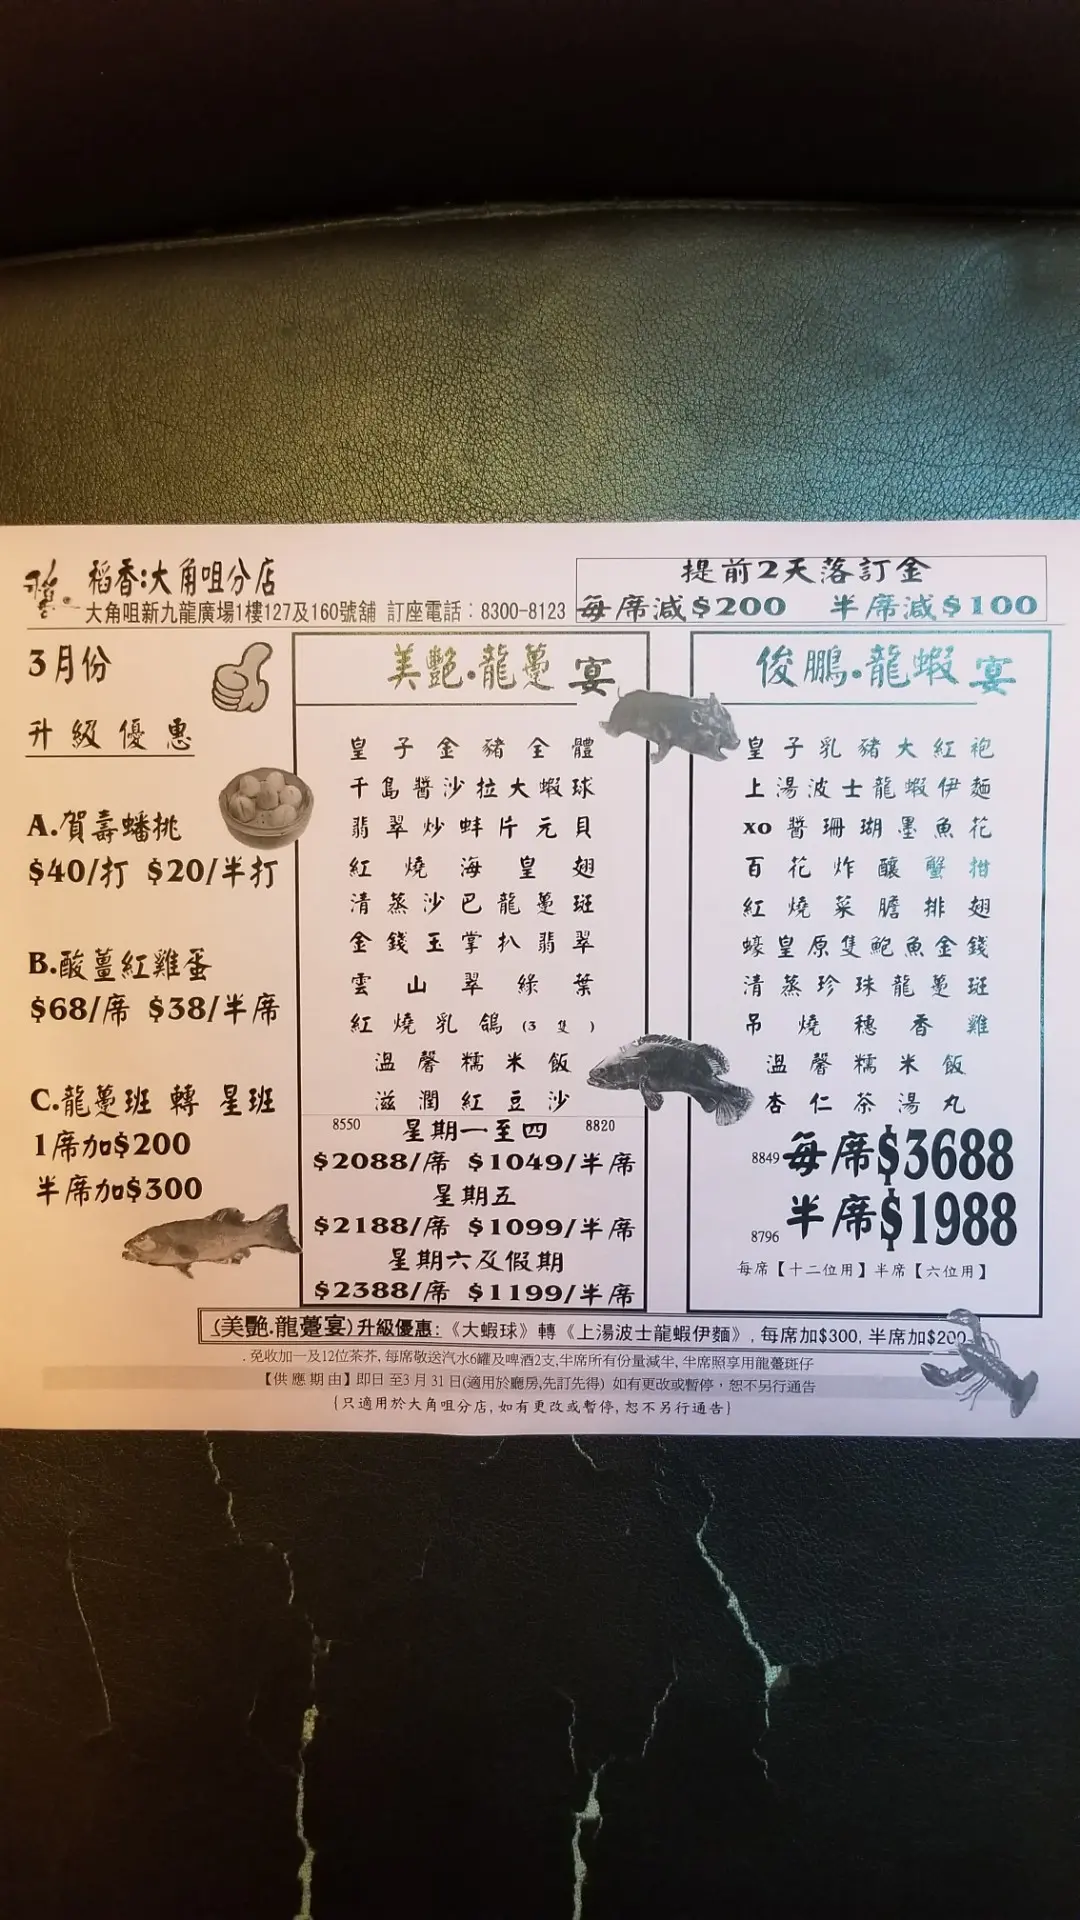 稻香:大角咀分店
大角咀新九龍廣場1樓127及160號舖 訂座電話:8300-8123
提前2天落訂金
每席減$200 半席減$100
3月份
升級優惠
A.賀壽蟠挑
$40/打 $20/半打
B.酸薑紅雞蛋
$68/席 $38/半席
C.龍躉班 轉 星班
1席加$200
半席加$300
美艷.龍躉宴
皇子金豬全體
千島醬沙拉大蝦球
翡翠炒蚌片元貝
紅燒海皇翅
清蒸沙巴龍躉斑
金錢玉掌扒翡翠
雲山翠綠葉
紅燒乳鴿(3隻)
溫馨糯米飯
滋潤紅豆沙
8550 星期一至四 8820
$2088/席 $1049/半席
星期五
$2188/席 $1099/半席
星期六及假期
$2388/席 $1199/半席
俊鵬.龍蝦宴
皇子乳豬大紅袍
上湯波士龍蝦伊麵
xo醬珊瑚墨魚花
百花炸釀蟹拑
紅燒菜膽排翅
蠔皇原隻鮑魚金錢
清蒸珍珠龍躉斑
吊燒穗香雞
溫馨糯米飯
杏仁茶湯丸
8849 每席$3688
8796 半席$1988
每席【十二位用】半席【六位用】
(美艷.龍躉宴)升級優惠:《大蝦球》轉《上湯波士龍蝦伊麵》, 每席加$300, 半席加$200
.免收加一及12位茶芥, 每席敬送汽水6罐及啤酒2支,半席所有份量減半, 半席照享用龍躉斑仔
【供應期由】即日 至3月31日(適用於廳房,先訂先得) 如有更改或暫停，恕不另行通告
{只適用於大角咀分店, 如有更改或暫停, 恕不另行通告}